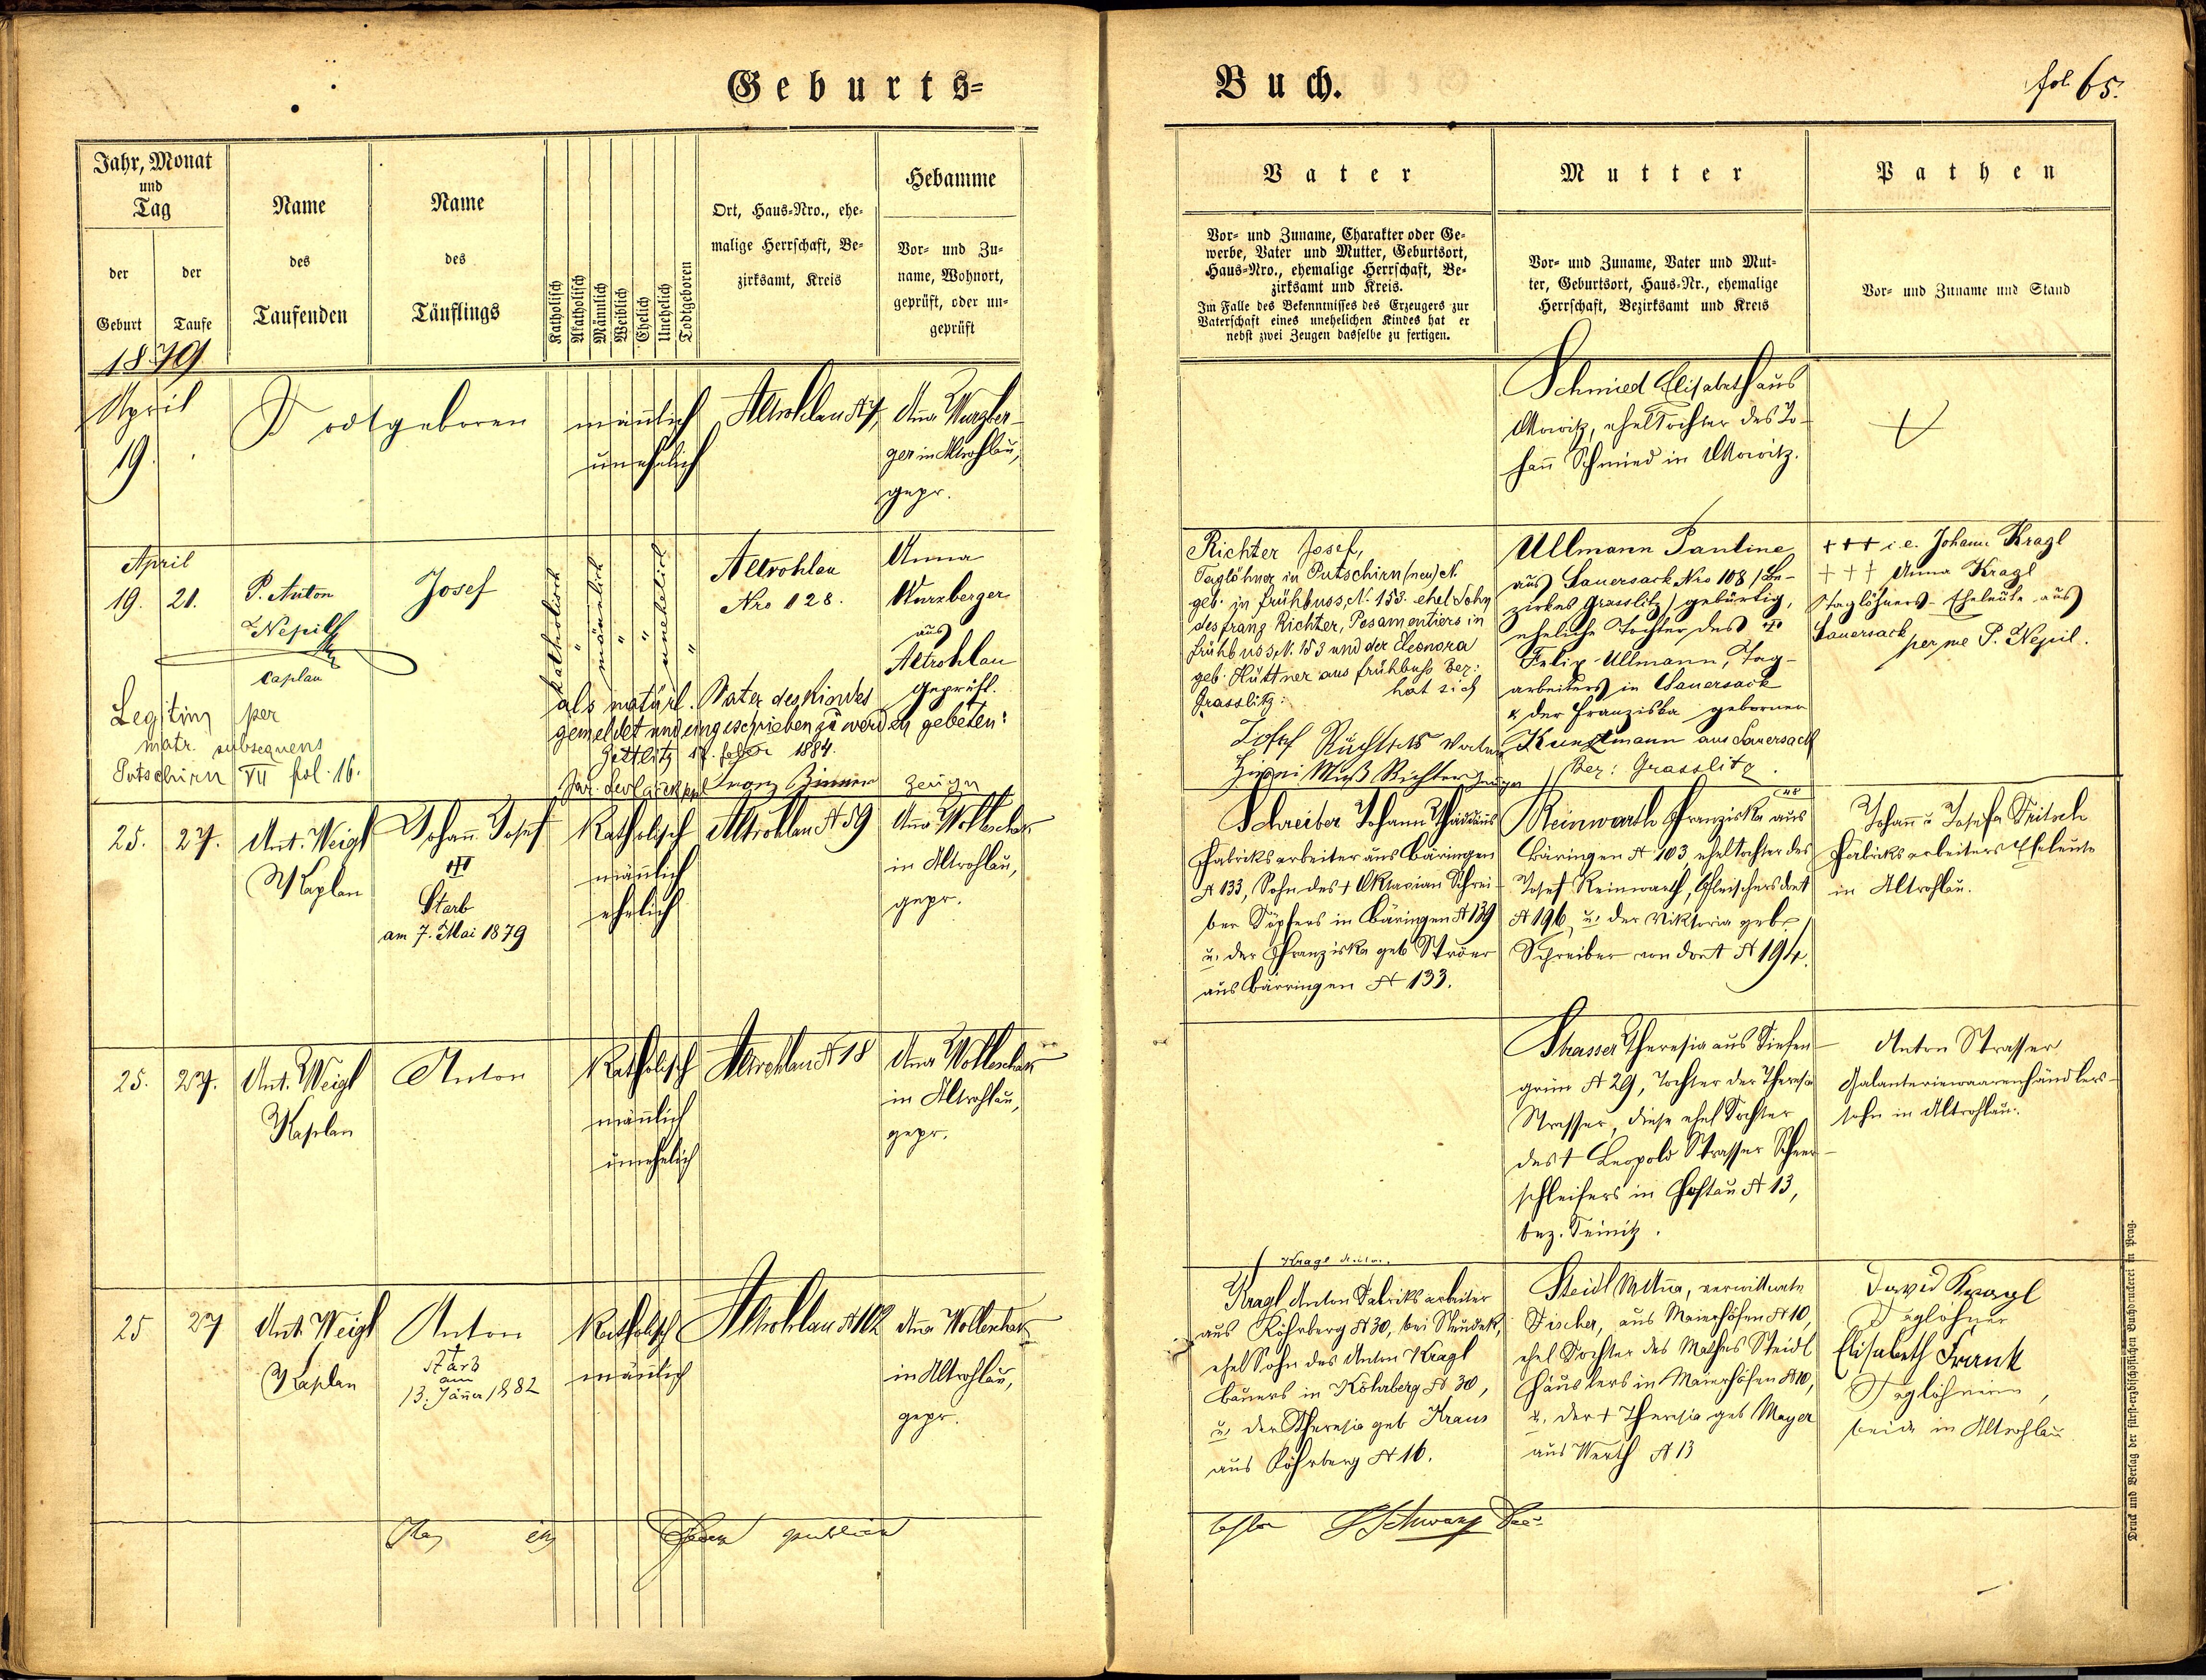 Geburts=
Buch.
fol. 65.
Jahr, Monat
und
Tag
der
Geburt
der
Taufe
Name
des
Taufenden
Name
des
Täuflings
Katholisch
Akatholisch
Männlich
Weiblich
Ehelich
Unehelich
Todtgeboren
Ort, Haus=Nro., ehe=
malige Herrschaft, Be=
zirksamt, Kreis
Hebamme
Vor= und Zu=
name, Wohnort,
geprüft, oder un=
geprüft
Vater
Vor= und Zuname, Charakter oder Ge=
werbe, Vater und Mutter, Geburtsort,
Haus=Nro., ehemalige Herrschaft, Be=
zirksamt und Kreis.
Im Falle des Bekenntnisses des Erzeugers zur
Vaterschaft eines unehelichen Kindes hat er
nebst zwei Zeugen dasselbe zu fertigen.
Mutter
Vor= und Zuname, Vater und Mut=
ter, Geburtsort, Haus=Nr., ehemalige
Herrschaft, Bezirksamt und Kreis
Pathen
Vor= und Zuname und Stand
1879
April
19.
Todtgeboren
männlich
unehelich
Altrohlau N 7,
Anna Wurzber-
ger in Altrohlau,
gepr.
Schmied Elisabeth aus
ehel Tochter des Jo-
hann Schmied in
April
19. 21.
P. Anton
Nepil
Caplan
Josef
katholisch
männlich
unehelich
Altrohlau
Nro 128.
Anna
Wurzberger
aus
Altrohlau
geprüft.
Legitim per
matr. subsequens
Putschirn VII fol. 16.
als natürl. Vater des Kindes
gemeldet und eingeschrieben zu werden gebeten:
Zettlitz 1884.
Zeugen
Richter Josef,
Taglöhner in Putschirn (neu) N.
geb. in Frühbuss, N. 153. ehel Sohn
des Franz Richter, Posamentiers in
Frühbuss N. 153 und der Eleonora
geb. Hüttner aus Frühbuss Bez:
Grasslitz: hat sich
Josef Vater
Richter Zeuge
Ullmann Pauline
aus Sauersack Nro 108 /Be-
zirkes Grasslitz/ gebürtig,
eheliche Tochter des
Felix Ullmann, Tag-
arbeiters in Sauersack
& der Franziska geborner
Kunzlmann aus Sauersack
Bez: Grasslitz.
+++ i.e. Johann Kragl
+++ Anna Kragl
Taglöhners-Eheleute aus
Sauersack per me P. Nepil.
25. 27.
Ant. Weigl
Kaplan
Johann Josef
Starb
am 7. Mai 1879
Katholisch
männlich
ehelich
Altrohlau N 59
Anna Wollenhak
in Altrohlau,
gepr.
Schreiber Johann Thaddäus
Fabriksarbeiter aus Bäringen
N 133, Sohn des + Oktavian Schrei-
ber Töpfers in Bäringen N 139
u. der Franziska geb Ströer
aus Bärringen N 133.
Reinwarth Franziska aus
Bäringen N 103, ehel Tochter des
Josef Reinwarth, Fleischers dort
N 196, u. der Viktoria geb.
Schreiber von dort N 194.
Johann u Josefa Fritsch
Fabriksarbeiters Eheleute
in Altrohlau.
25. 27.
Ant. Weigl
Kaplan
Anton
Katholisch
männlich
unehelich
Altrohlau N 18
Anna Wollenhak
in Altrohlau,
gepr.
Strasser Theresia aus Tiefen-
grün N 29, Tochter der Theresia
Strasser, diese ehel Tochter
des + Leopold Strasser Scheer-
schleifers in Hostau N 13,
bez. Teinitz.
Anton Strasser
Galanteriewaarenhändlers-
sohn in Altrohlau.
25 27
Ant. Weigl
Kaplan
Anton
+
starb
am
13. Jäner 1882
Katholisch
männlich
Altrohlau N 102
Anna Wollenhak
in Altrohlau,
gepr.
Kragl Anton.
Kragl Anton Fabriksarbeiter
aus Köhrberg N 30, bei Neudek,
ehel Sohn des Anton Kragl
Bauers in Köhrberg N. 30,
u. der Theresia geb Kraus
aus Köhrberg N 16.
Steidl Anna, verwittwete
Fischer, aus Maierhöfen N 10,
ehel Tochter des Mathes Steidl
Häuslers in Maierhöfen N 10,
u. der + Theresia geb Mayer
aus Werth N 13
David Kragl
Taglöhner
Elisabeth Frank
Taglöhnerin,
beide in Altrohlau
Schwarz
Druck und Verlag der fürst-erzbischöflichen Buchdruckerei in Prag.